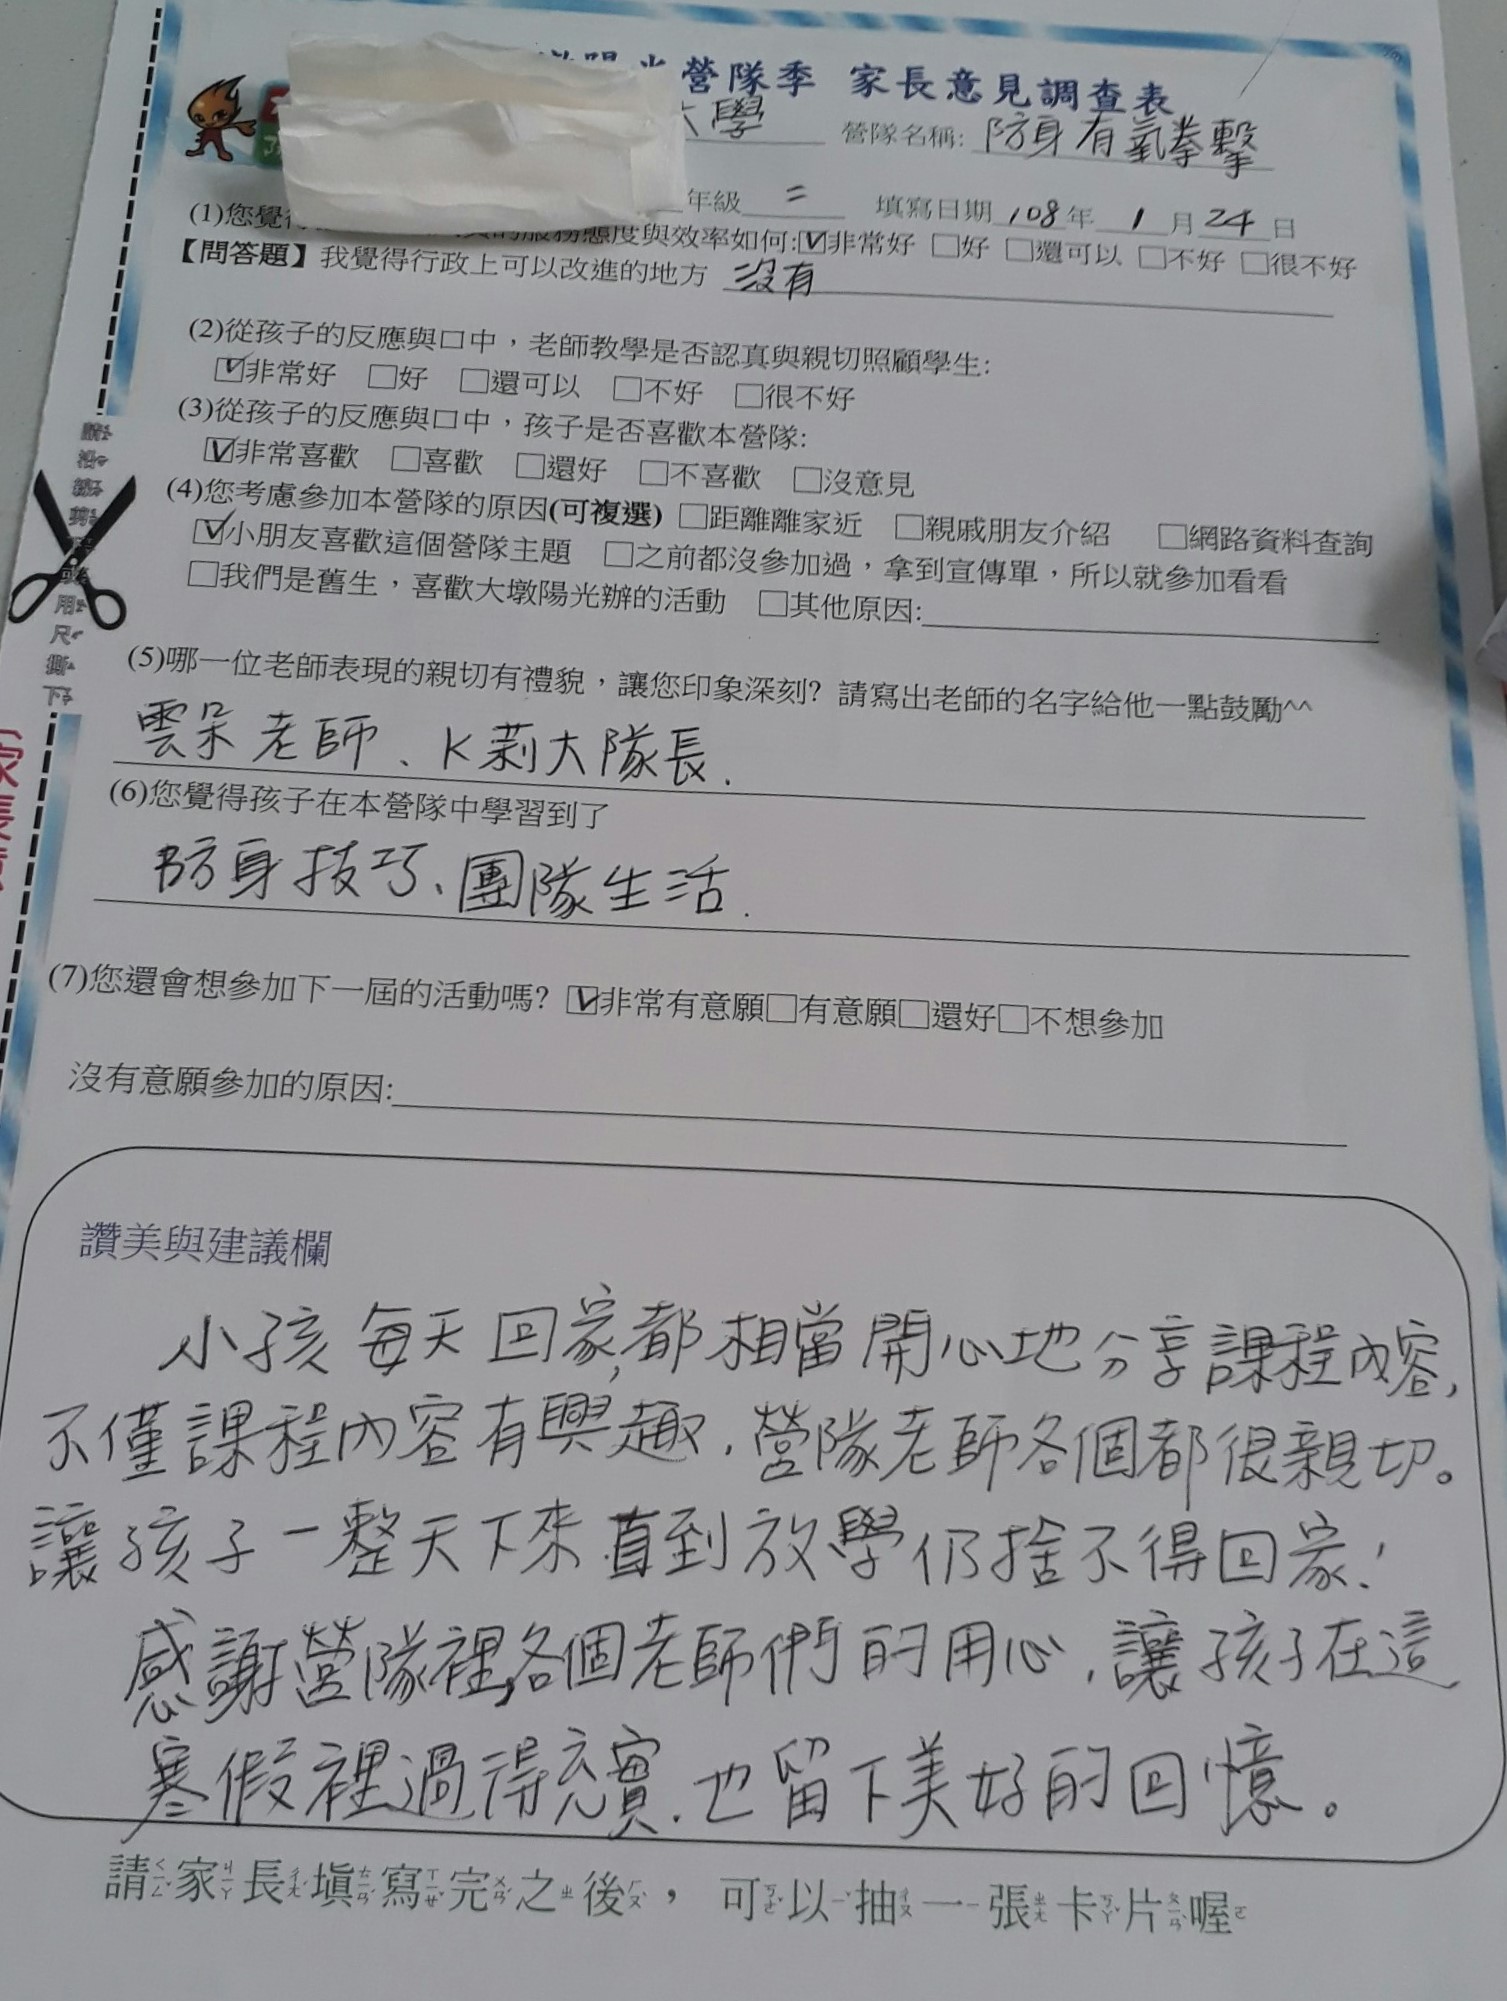 營隊季 家長意見調查表
學 營隊名稱: 防身有氧拳擊
年級 二 填寫日期 108年 1月 24日
(1)您覺 的服務態度與效率如何:☑非常好 □好 □還可以 □不好 □很不好
【問答題】我覺得行政上可以改進的地方 沒有
(2)從孩子的反應與口中，老師教學是否認真與親切照顧學生:
☑非常好 □好 □還可以 □不好 □很不好
(3)從孩子的反應與口中，孩子是否喜歡本營隊:
☑非常喜歡 □喜歡 □還好 □不喜歡 □沒意見
(4)您考慮參加本營隊的原因(可複選) □距離離家近 □親戚朋友介紹 □網路資料查詢
☑小朋友喜歡這個營隊主題 □之前都沒參加過，拿到宣傳單，所以就參加看看
□我們是舊生，喜歡大墩陽光辦的活動 □其他原因:
(5)哪一位老師表現的親切有禮貌，讓您印象深刻? 請寫出老師的名字給他一點鼓勵^^
雲朵老師、K莉大隊長.
(6)您覺得孩子在本營隊中學習到了
防身技巧、團隊生活.
(7)您還會想參加下一屆的活動嗎? ☑非常有意願□有意願□還好□不想參加
沒有意願參加的原因:
讚美與建議欄
小孩每天回家,都相當開心地分享課程內容,
不僅課程內容有興趣,營隊老師各個都很親切。
讓孩子一整天下來直到放學仍捨不得回家!
感謝營隊裡,各個老師們的用心,讓孩子在這
寒假裡過得充實,也留下美好的回憶。
請家長填寫完之後，可以抽一張卡片喔